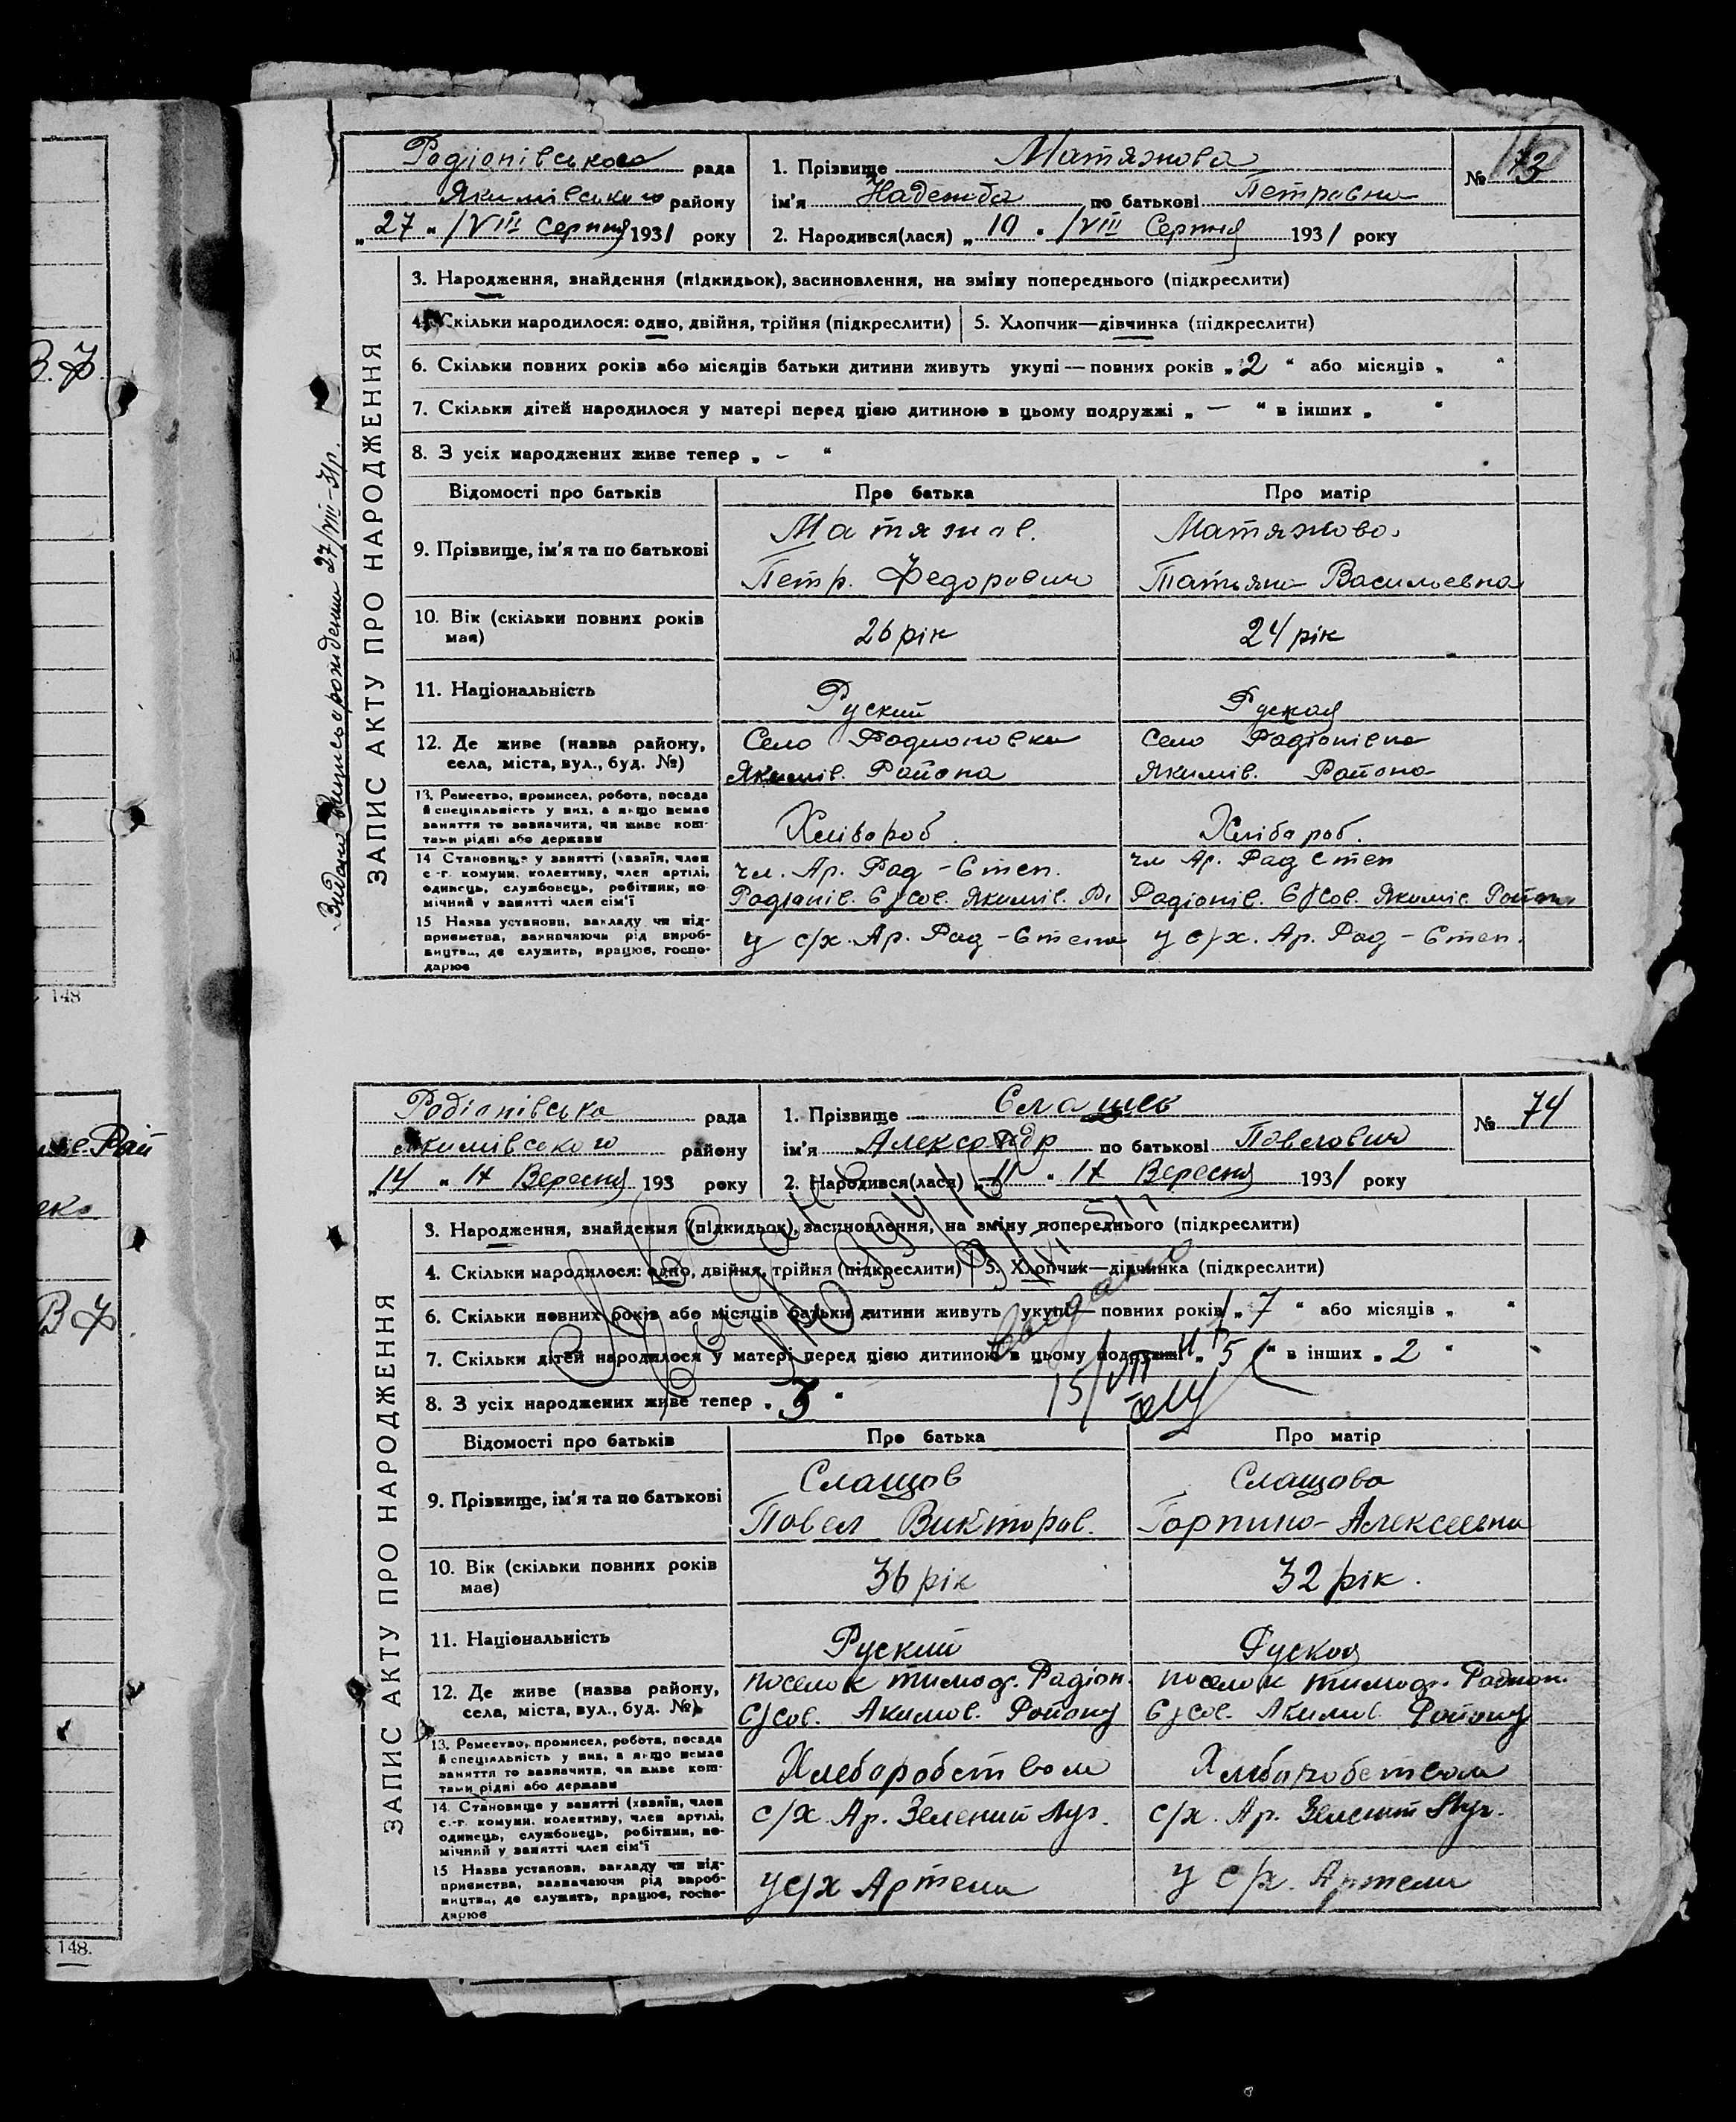 В. Ф.
148
Рай
ВФ.
148.
Видана выпись о рождении 27/VIII-31р.
ЗАПИС АКТУ ПРО НАРОДЖЕННЯ
Радіонівського рада
Якимівського району
„27“ /VIII Серпня 1931 року
1. Прізвище Матяжова
ім'я Надежда по батькові Петровна
2. Народився(лася) „19“ /VIII Серпня 1931 року
№ 73
3. Народження, знайдення (підкидьок), засиновлення, на зміну попереднього (підкреслити)
4. Скільки народилося: одно, двійня, трійня (підкреслити) 5. Хлопчик—дівчинка (підкреслити)
6. Скільки повних років або місяців батьки дитини живуть укупі — повних років „2“ або місяців „ “
7. Скільки дітей народилося у матері перед цією дитиною в цьому подружжі „—“ в інших „ “
8. З усіх народжених живе тепер „-“
Відомості про батьків Про батька Про матір
9. Прізвище, ім'я та по батькові
Матяжов. Матяжова
Петр. Федорович Татьяна Василоевна
10. Вік (скільки повних років має) 26 рік 24 рік
11. Національність Руский Руская
12. Де живе (назва району, села, міста, вул., буд. №)
Село Родионовка Село Радіонівка
Якимів. Района Якимів. Района
13. Ремество, промисел, робота, посада й спеціальність у них, а якщо немає заняття то зазначити, чи живе коштами рідні або держави
Хлібороб. Хлібороб.
14 Становище у занятті (хазяїн, член с.-г. комуни, колективу, член артілі, одинець, службовець, робітник, помічний у занятті член сім'ї
чл. Ар. Рад - Степ. чл Ар. Рад Степ
Радіонів. С/сов. Якимів. Р. Радіонів. С/сов. Якимів Района
15 Назва установи, закладу чи підприємства, зазначаючи рід виробництва, де служить, працює, господарює
у с/х. Ар. Рад - Степ у с/х. Ар. Рад - Степ.
ЗАПИС АКТУ ПРО НАРОДЖЕННЯ
Радіонівська рада
Якимівського району
„14“ IX Вересня 193 року
1. Прізвище Слащов
ім'я Александр по батькові Павлович
2. Народився(лася) „11“ IX Вересня 1931 року
№ 74
3. Народження, знайдення (підкидьок), засиновлення, на зміну попереднього (підкреслити)
4. Скільки народилося: одно, двійня, трійня (підкреслити) 5. Хлопчик—дівчинка (підкреслити)
6. Скільки повних років або місяців батьки дитини живуть укупі — повних років „7“ або місяців „ “
7. Скільки дітей народилося у матері перед цією дитиною в цьому подружжі „5“ в інших „2“
8. З усіх народжених живе тепер „3“
15/VII
Відомості про батьків Про батька Про матір
9. Прізвище, ім'я та по батькові
Слащов Слащова
Повел Викторов. Горпина Алексеевна
10. Вік (скільки повних років має) 36 рік 32 рік.
11. Національність Руский Руская
12. Де живе (назва району, села, міста, вул., буд. №)
поселок тимоф. Радіон. поселок тимоф. Радион.
С/сов. Акимов. Району С/сов. Акимов. Району
13. Ремество, промисел, робота, посада й спеціальність у них, а якщо немає заняття то зазначити, чи живе коштами рідні або держави
Хлеборобством Хлеборобством
14. Становище у занятті (хазяїн, член с.-г. комуни, колективу, член артілі, одинець, службовець, робітник, помічний у занятті член сім'ї
с/х. Ар. Зелений Луг. с/х. Ар. Зелений Луг.
15 Назва установи, закладу чи підприємства, зазначаючи рід виробництва, де служить, працює, господарює
у с/х Артели у с/х. Артели